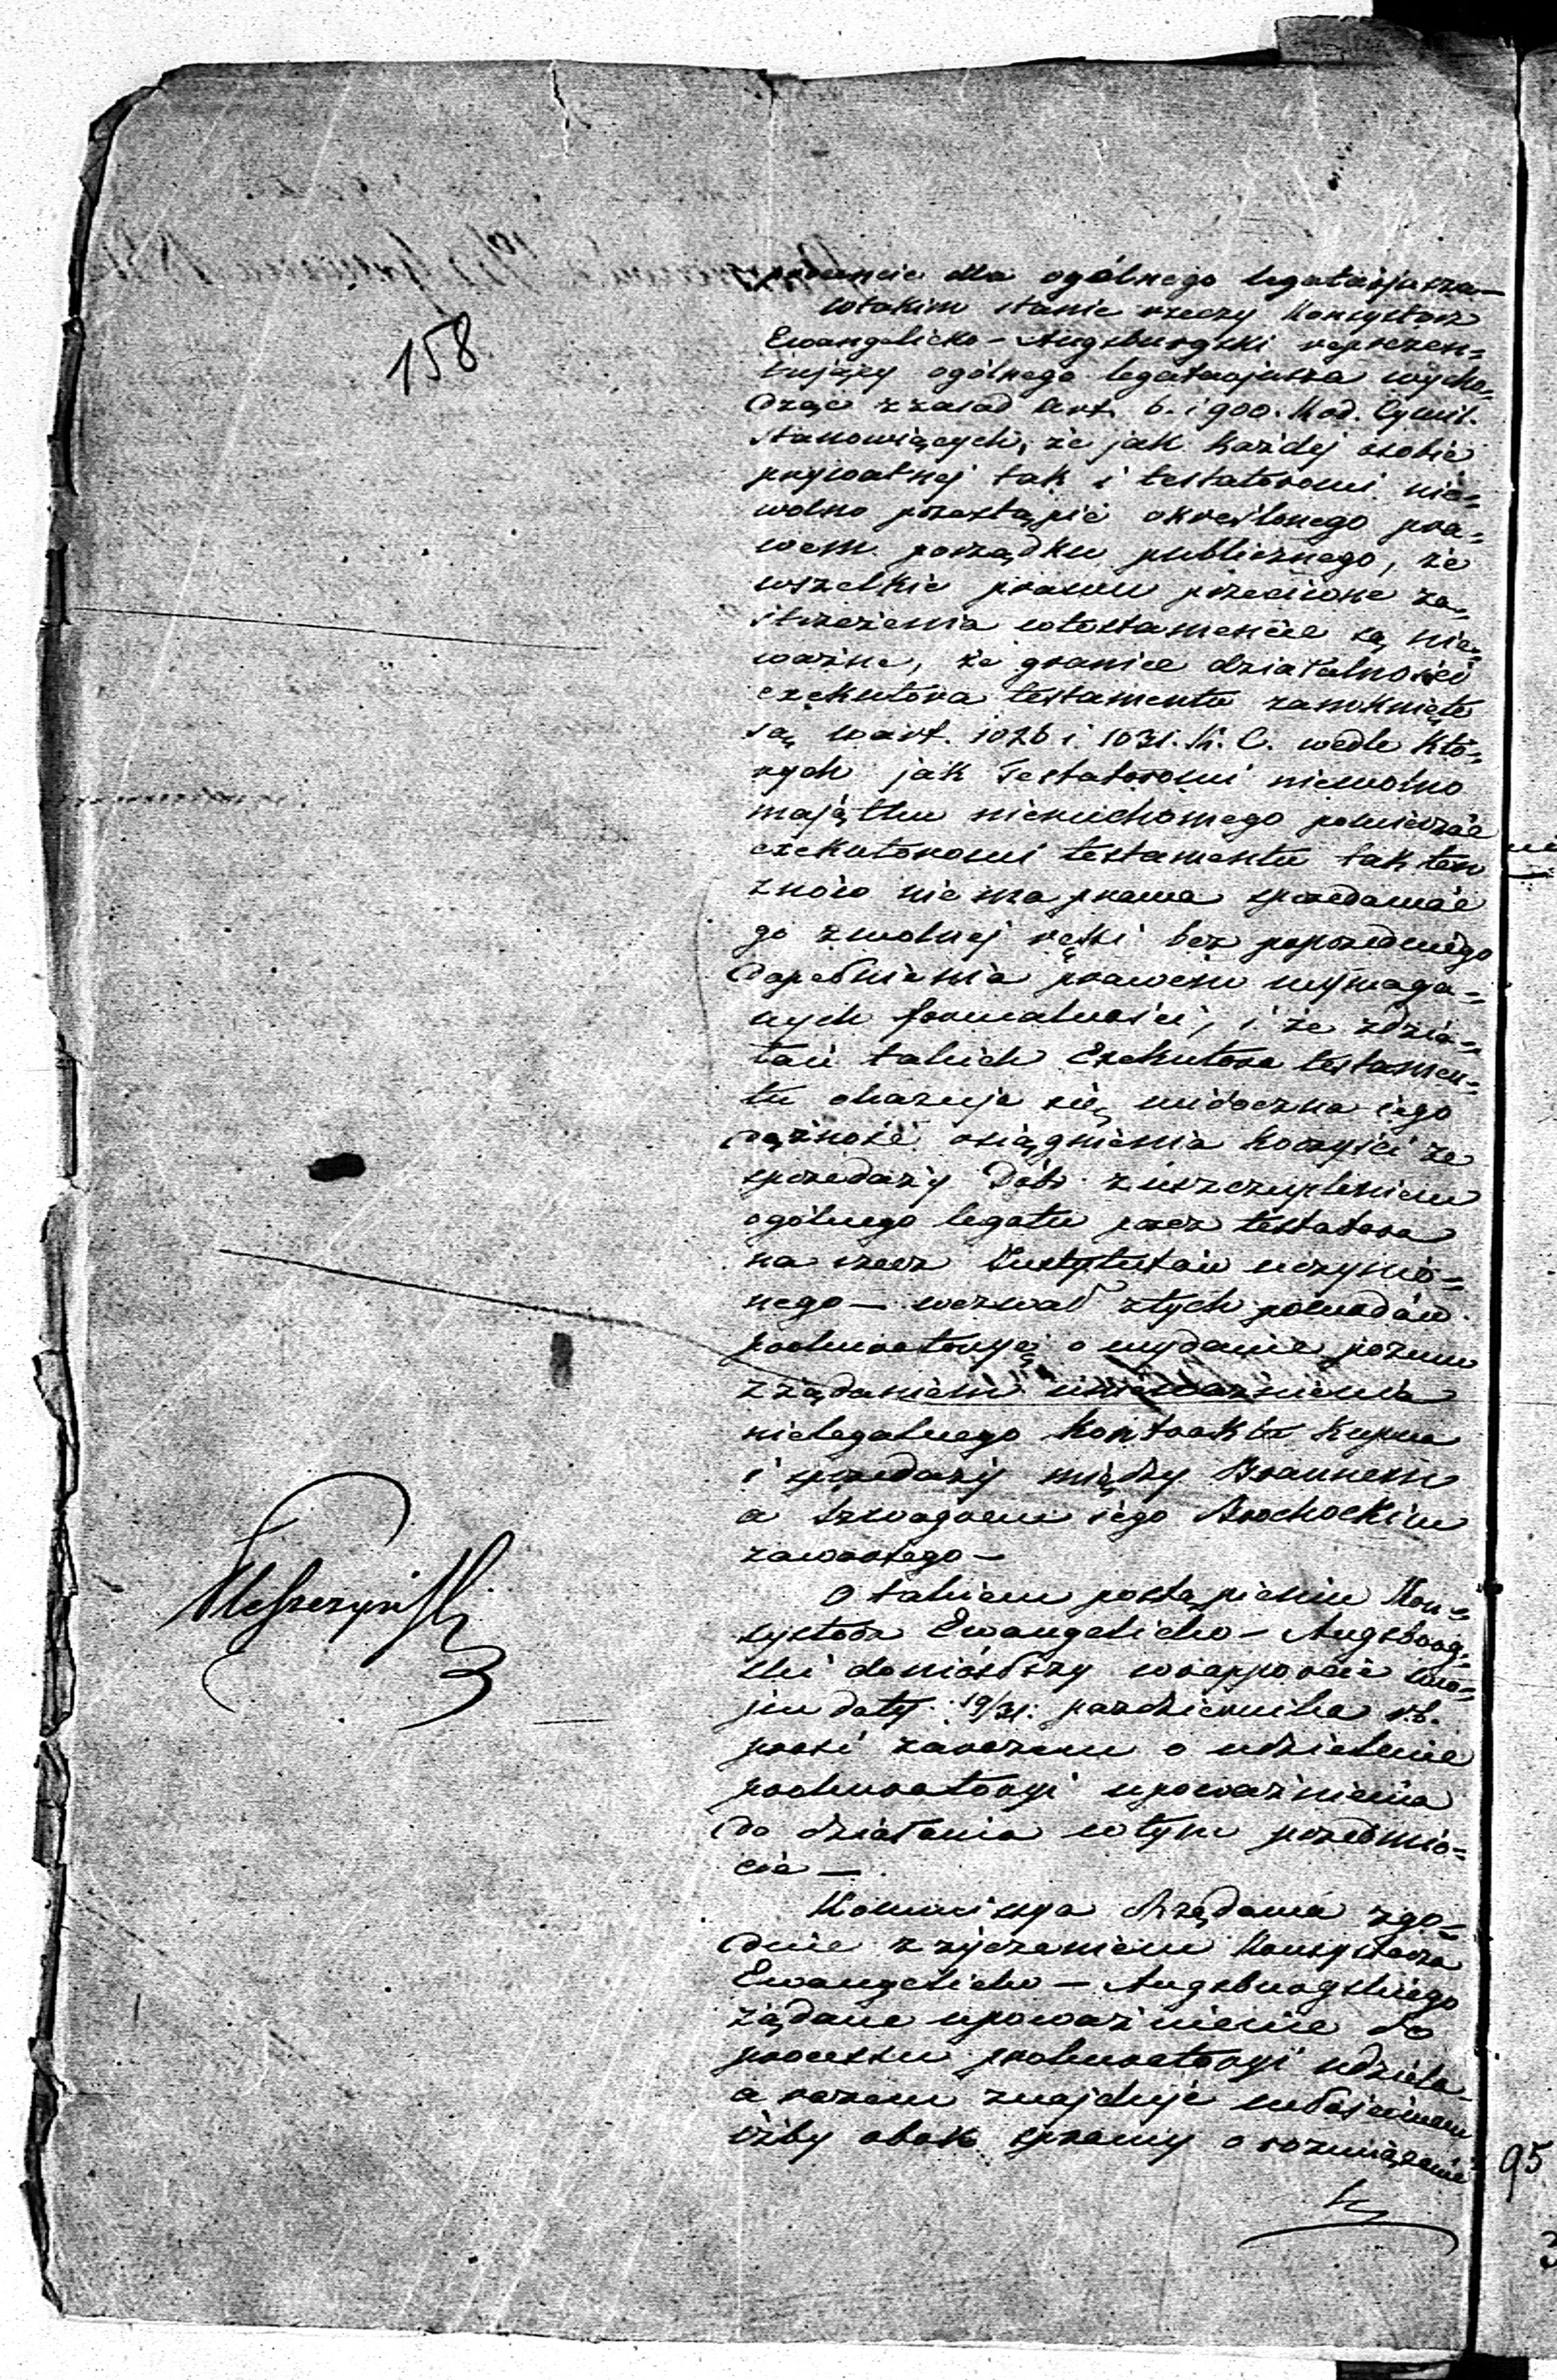 158
pomencie dla ogólnego legatarjusza—
Wtakim stanie rzeczy Konsystorz
Ewangelicko-Augsburgski reprezen=
tujący ogólnego legatarjusza wycho=
dząc z zasad Art. 6. i 900. Kod. Cywil.
stanowiących, że jak każdej osobie
prywatnej tak i testatorowi nie=
wolno przestąpić określonego pra=
wem porządku publicznego, że
wszelkie prawu przeciwne za=
strzeżenia wtestamencie są nie=
ważne, że granice działalności
exekutora testamentu zamknięte
są wart. 1026 i 1031. K. C. wedle któ=
rych jak Testatorowi niewolno
majątku nieruchomego powierzać
exekutorowi testamentu tak ten
znów nie ma prawa sprzedawać
go zwolnej ręki bez poprzedniego
dopełnienia prawem wymaga=
nych formalności, i że zdzia=
łań takich Exekutora testamen=
tu okazuje się widoczna iego
dążność osiągnienia korzyści ze
sprzedaży Dóbr zuszczupleniem
ogólnego legatu przez testatora
na rzecz Instytutów uczynio=
nego— wezwał ztych powodów
prokuratoryę o wydanie pozwu
z żądaniem unieważnienia
nielegalnego kontraktu kupna
i sprzedaży między Braunem
a Szwagrem iego Brochockim
zawartego—
O takiem postąpieniu Kon=
systorz Ewangelicko-Augsburg=
ski doniósłszy wrapporcie swo=
jem daty 19/31. października r.b.
prosi zarazem o udzielenie
prokuratoryi upoważnienia
do działania wtym przedmio=
cie—
Kommissya Rządowa zgo=
dnie z życzeniem Konsystorza
Ewangelicko-Augsburgskiego
żądane upoważnienie do
processu prokuratoryi udziela
a razem znajduje właściwem
iżby obok sprawy o rozwiązanie
95